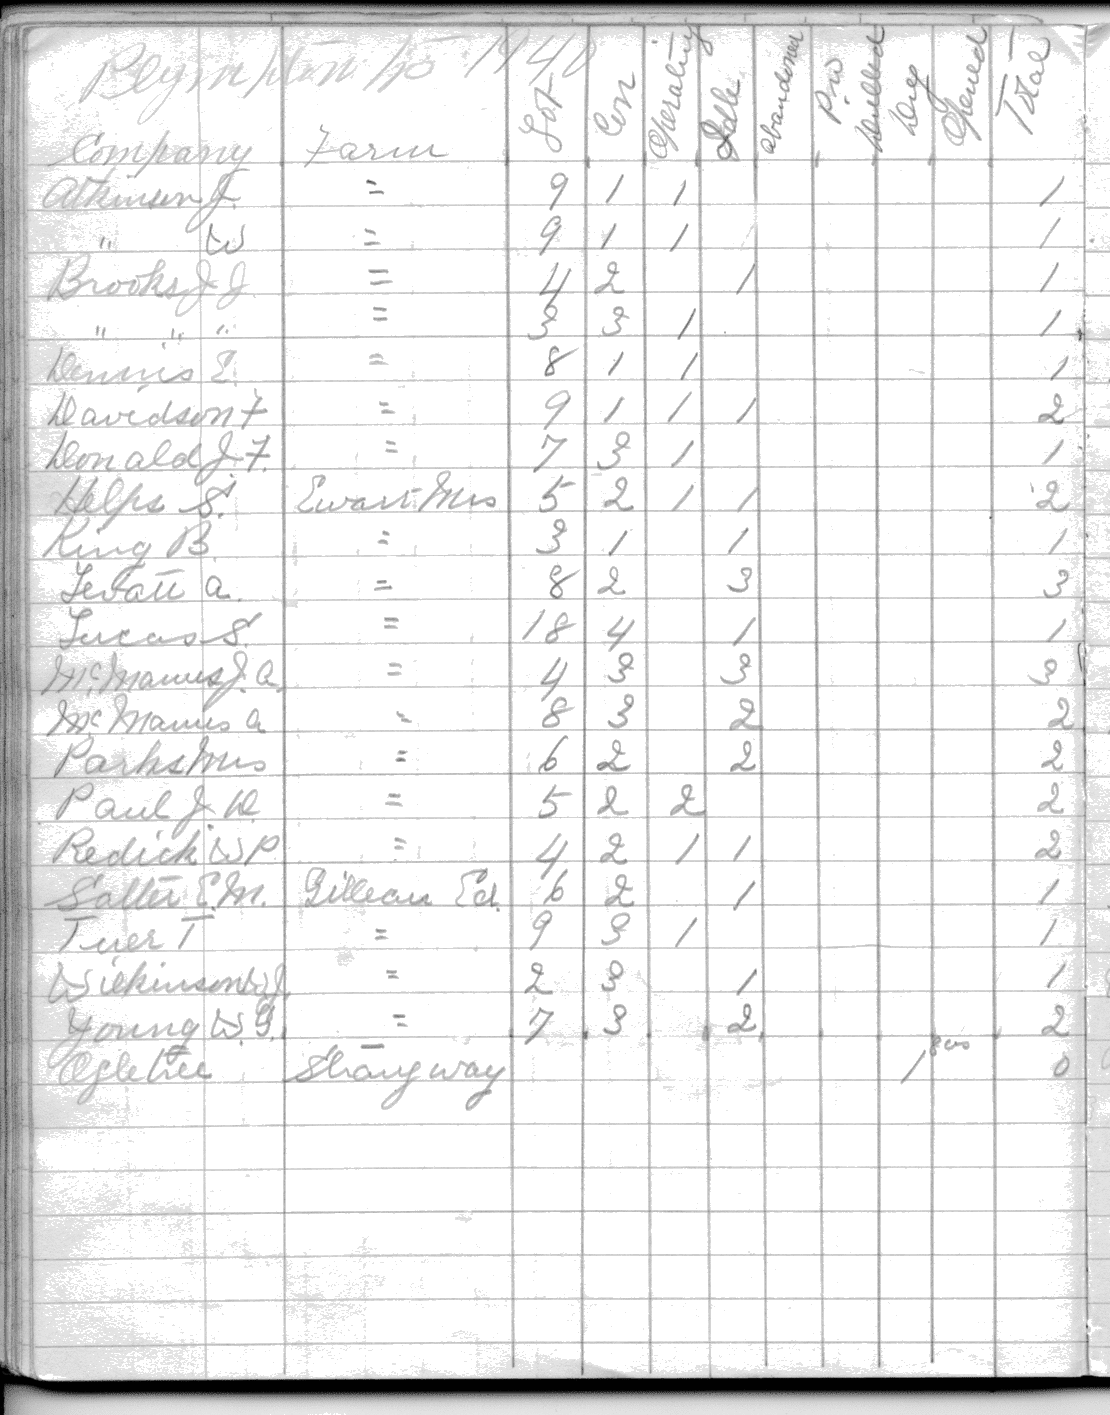 Plympton 1940
Company Farm Lot Con Operating Idle abandoned Drilled Dry Opened Total
Atkinson J. " 9 1 1 1
" W " 9 1 1 1
Brooks J J " 4 2 1 1
" " " " 3 3 1 1
Dennis E. " 8 1 1 1
Davidson F " 9 1 1 1 2
Donald J. F. " 7 3 1 1
Helps S. Ewart Mrs 5 2 1 1 2
King B. " 3 1 1 1
a. " 8 2 3 3
Lucas S. " 18 4 1 1
McManus J. a. " 4 3 3 3
McManus a " 8 3 2 2
Parks Mrs " 6 2 2 2
Paul J. D. " 5 2 2 2
Redick W P. " 4 2 1 1 2
Salter E. M. Gillean Ed. 6 2 1 1
Tuer T " 9 3 1 1
Wilkinson W J. " 2 3 1 1
Young W. G. " 7 3 2 2
Ogletree Shangway 1 gas 0